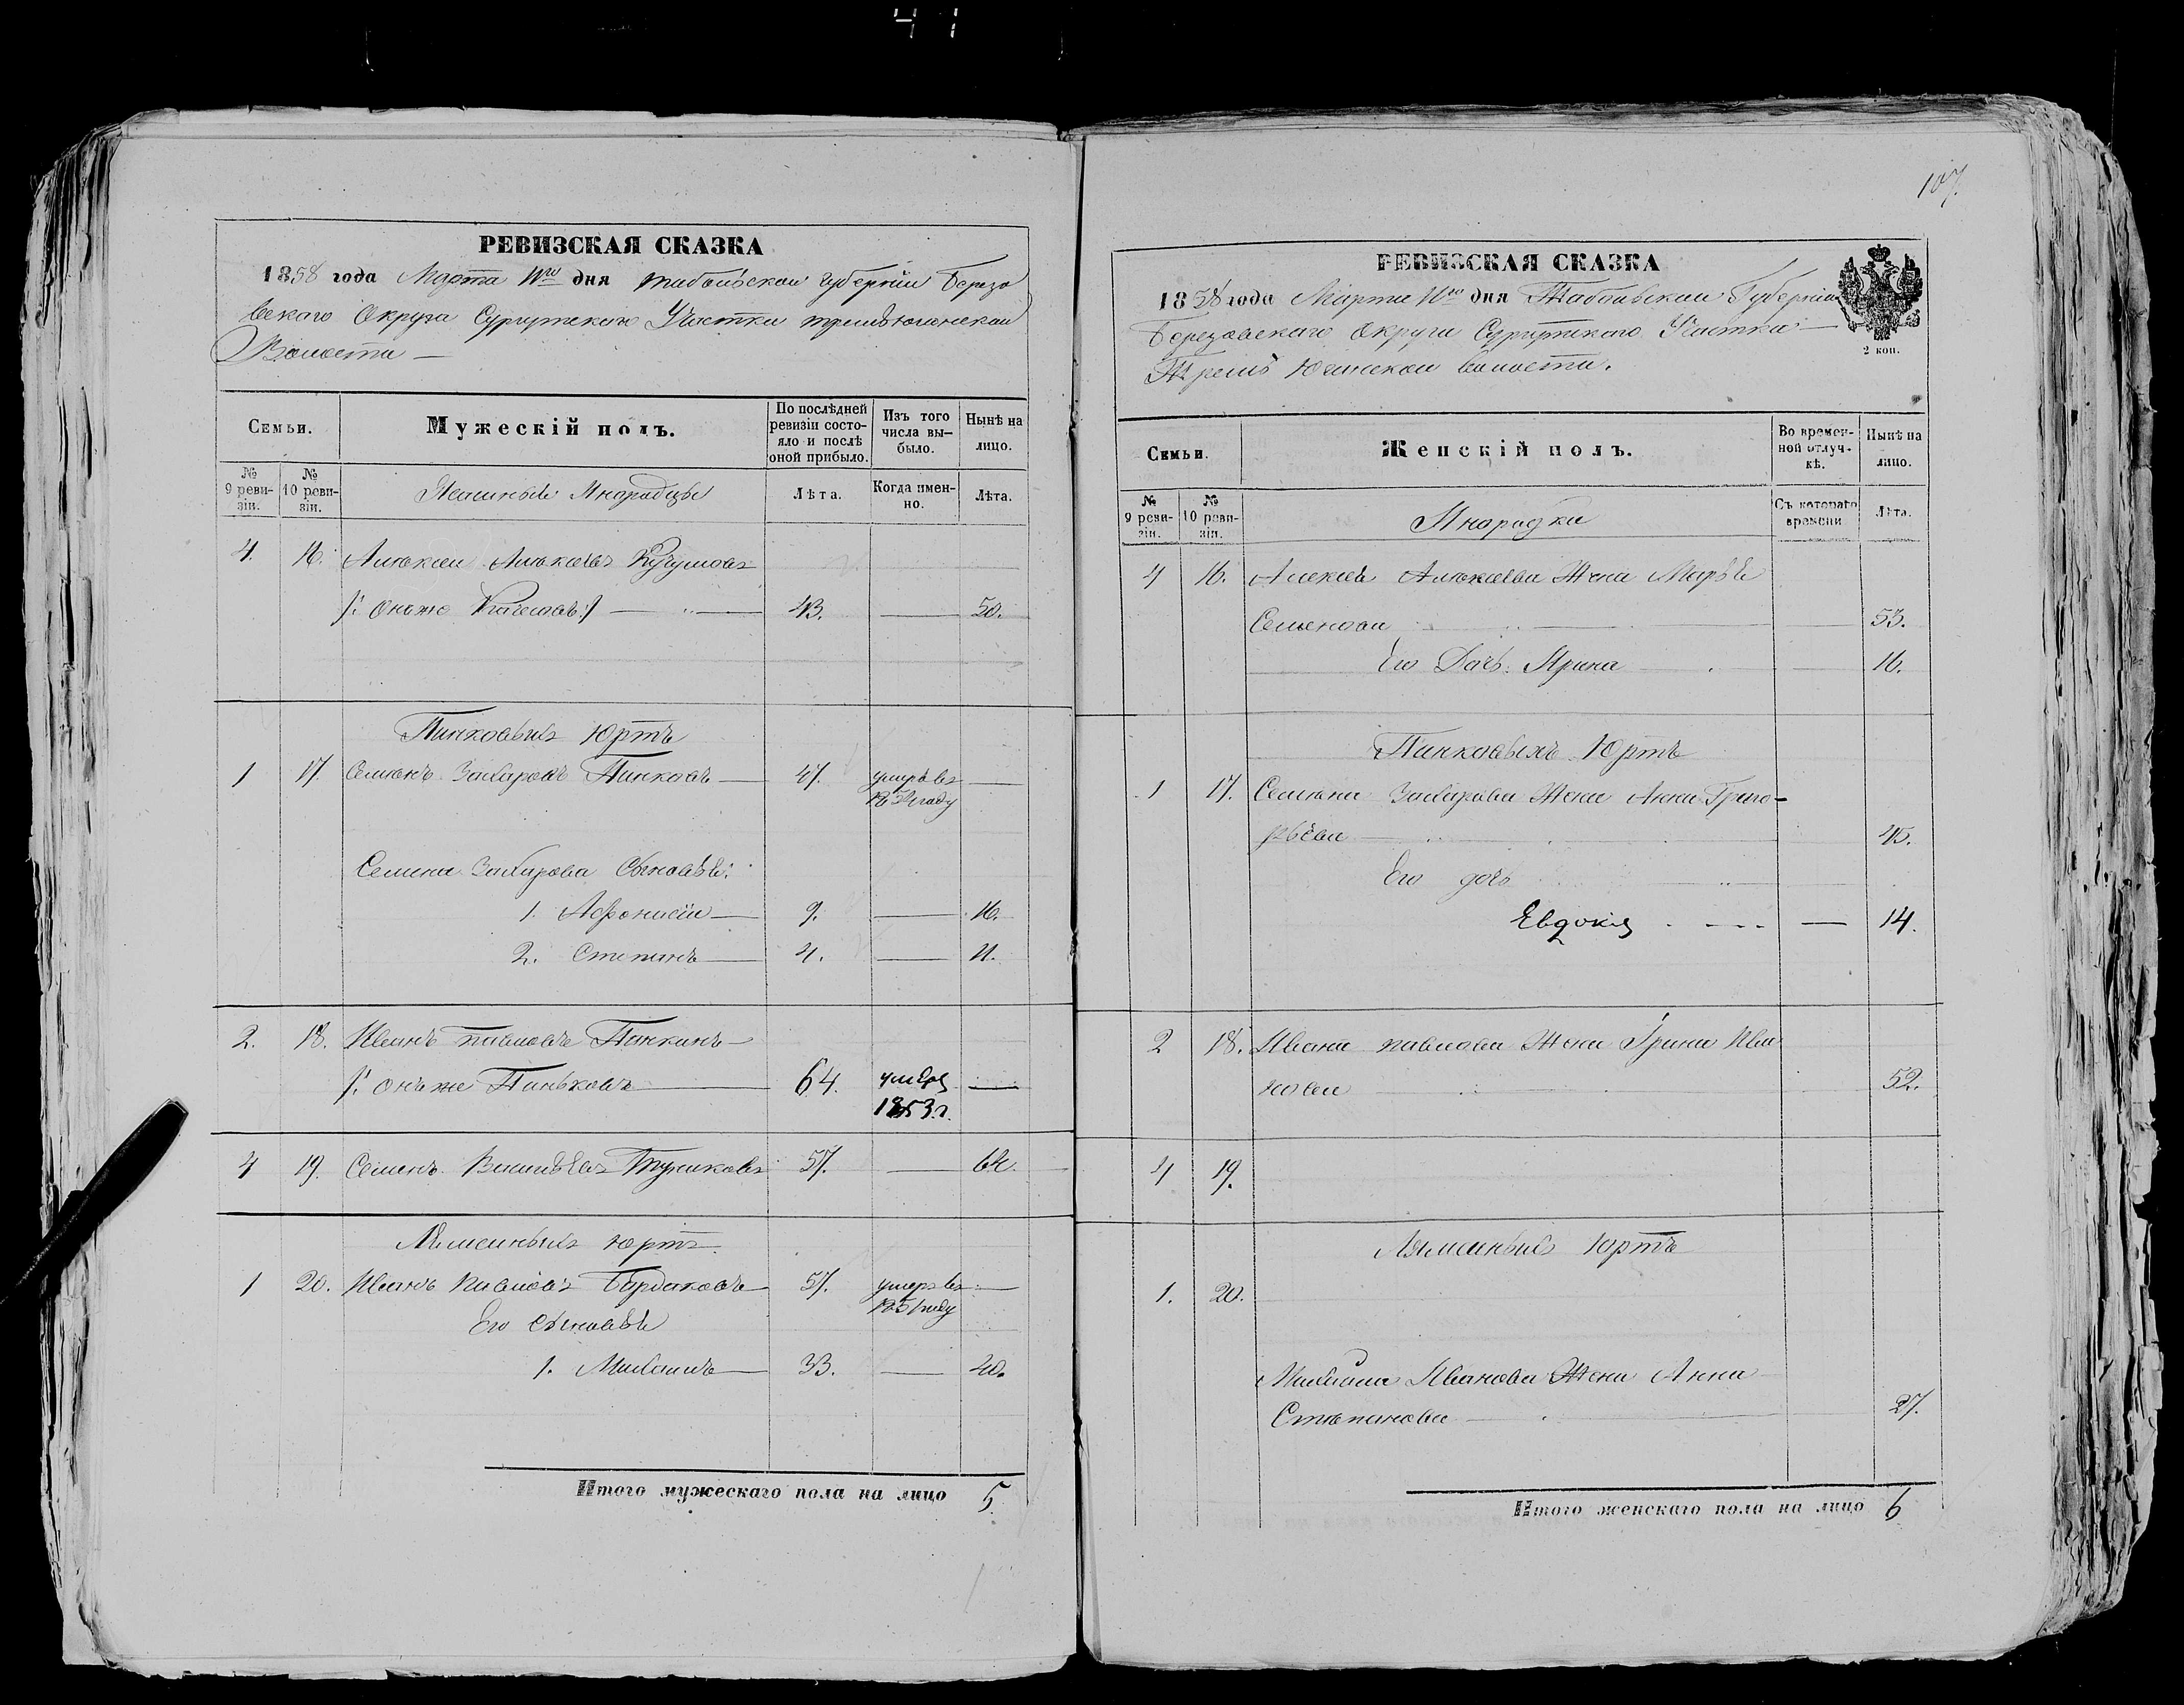 41
РЕВИЗСКАЯ СКАЗКА
1858 года Марта дня Тобольской губерніи Березо
вскаго Округа Сургутскаго Участка
Волости —
Семьи.
Мужескій полъ.
По послѣдней ревизіи состояло и послѣ оной прибыло.
Изъ того числа выбыло.
Нынѣ на лицо.
№ 9 ревизіи.
№ 10 ревизіи.
Ясашные Инородцы
Лѣта.
Когда именно.
Лѣта.
4. 16.
/: онъ же :/ — 43. — 50.
Пинковыхъ Юртъ
1 17. Семенъ Захаровъ Пинковъ — 47. умеръ въ —
году
Семена Захарова Сыновья:
1. Афонасій — 9. — 16.
2. Степанъ — 4. — 11.
2. 18. Иванъ Павловъ Пинкинъ —
/: онъ же Пиньковъ — 64. умеръ —
1853 г.
4 19. Семенъ Васильевъ 57. — 64.
юртъ
1 20. Иванъ Павловъ Бардаковъ — 57. умеръ въ —
году
Его Сыновья
1. Михаилъ — 33. — 40.
Итого мужескаго пола на лицо 5.
107.
РЕВИЗСКАЯ СКАЗКА
1858 года Марта дня Тобольской Губерніи
Березовскаго Округа Сургутскаго Участка —
Юганской волости.
2 коп.
Семьи.
Женскій полъ.
Во временной отлучкѣ.
Нынѣ на лицо.
№ 9 ревизіи.
№ 10 ревизіи.
Инородки
Съ котораго времени
Лѣта.
4 16. Жена Марья
Семенова — 53.
Его Дочь Ирина — 16.
Пинковыхъ Юртъ
1 17. Семена Захарова Жена Анна Григо-
рьева — 45.
Его дочь
Евдокія — 14.
2 18. Ивана Павлова Жена Ирина Ива
нова — 52.
4 19.
Юртъ
1. 20.
Михаила Иванова Жена Анна
Степанова — 27.
Итого женскаго пола на лицо 6